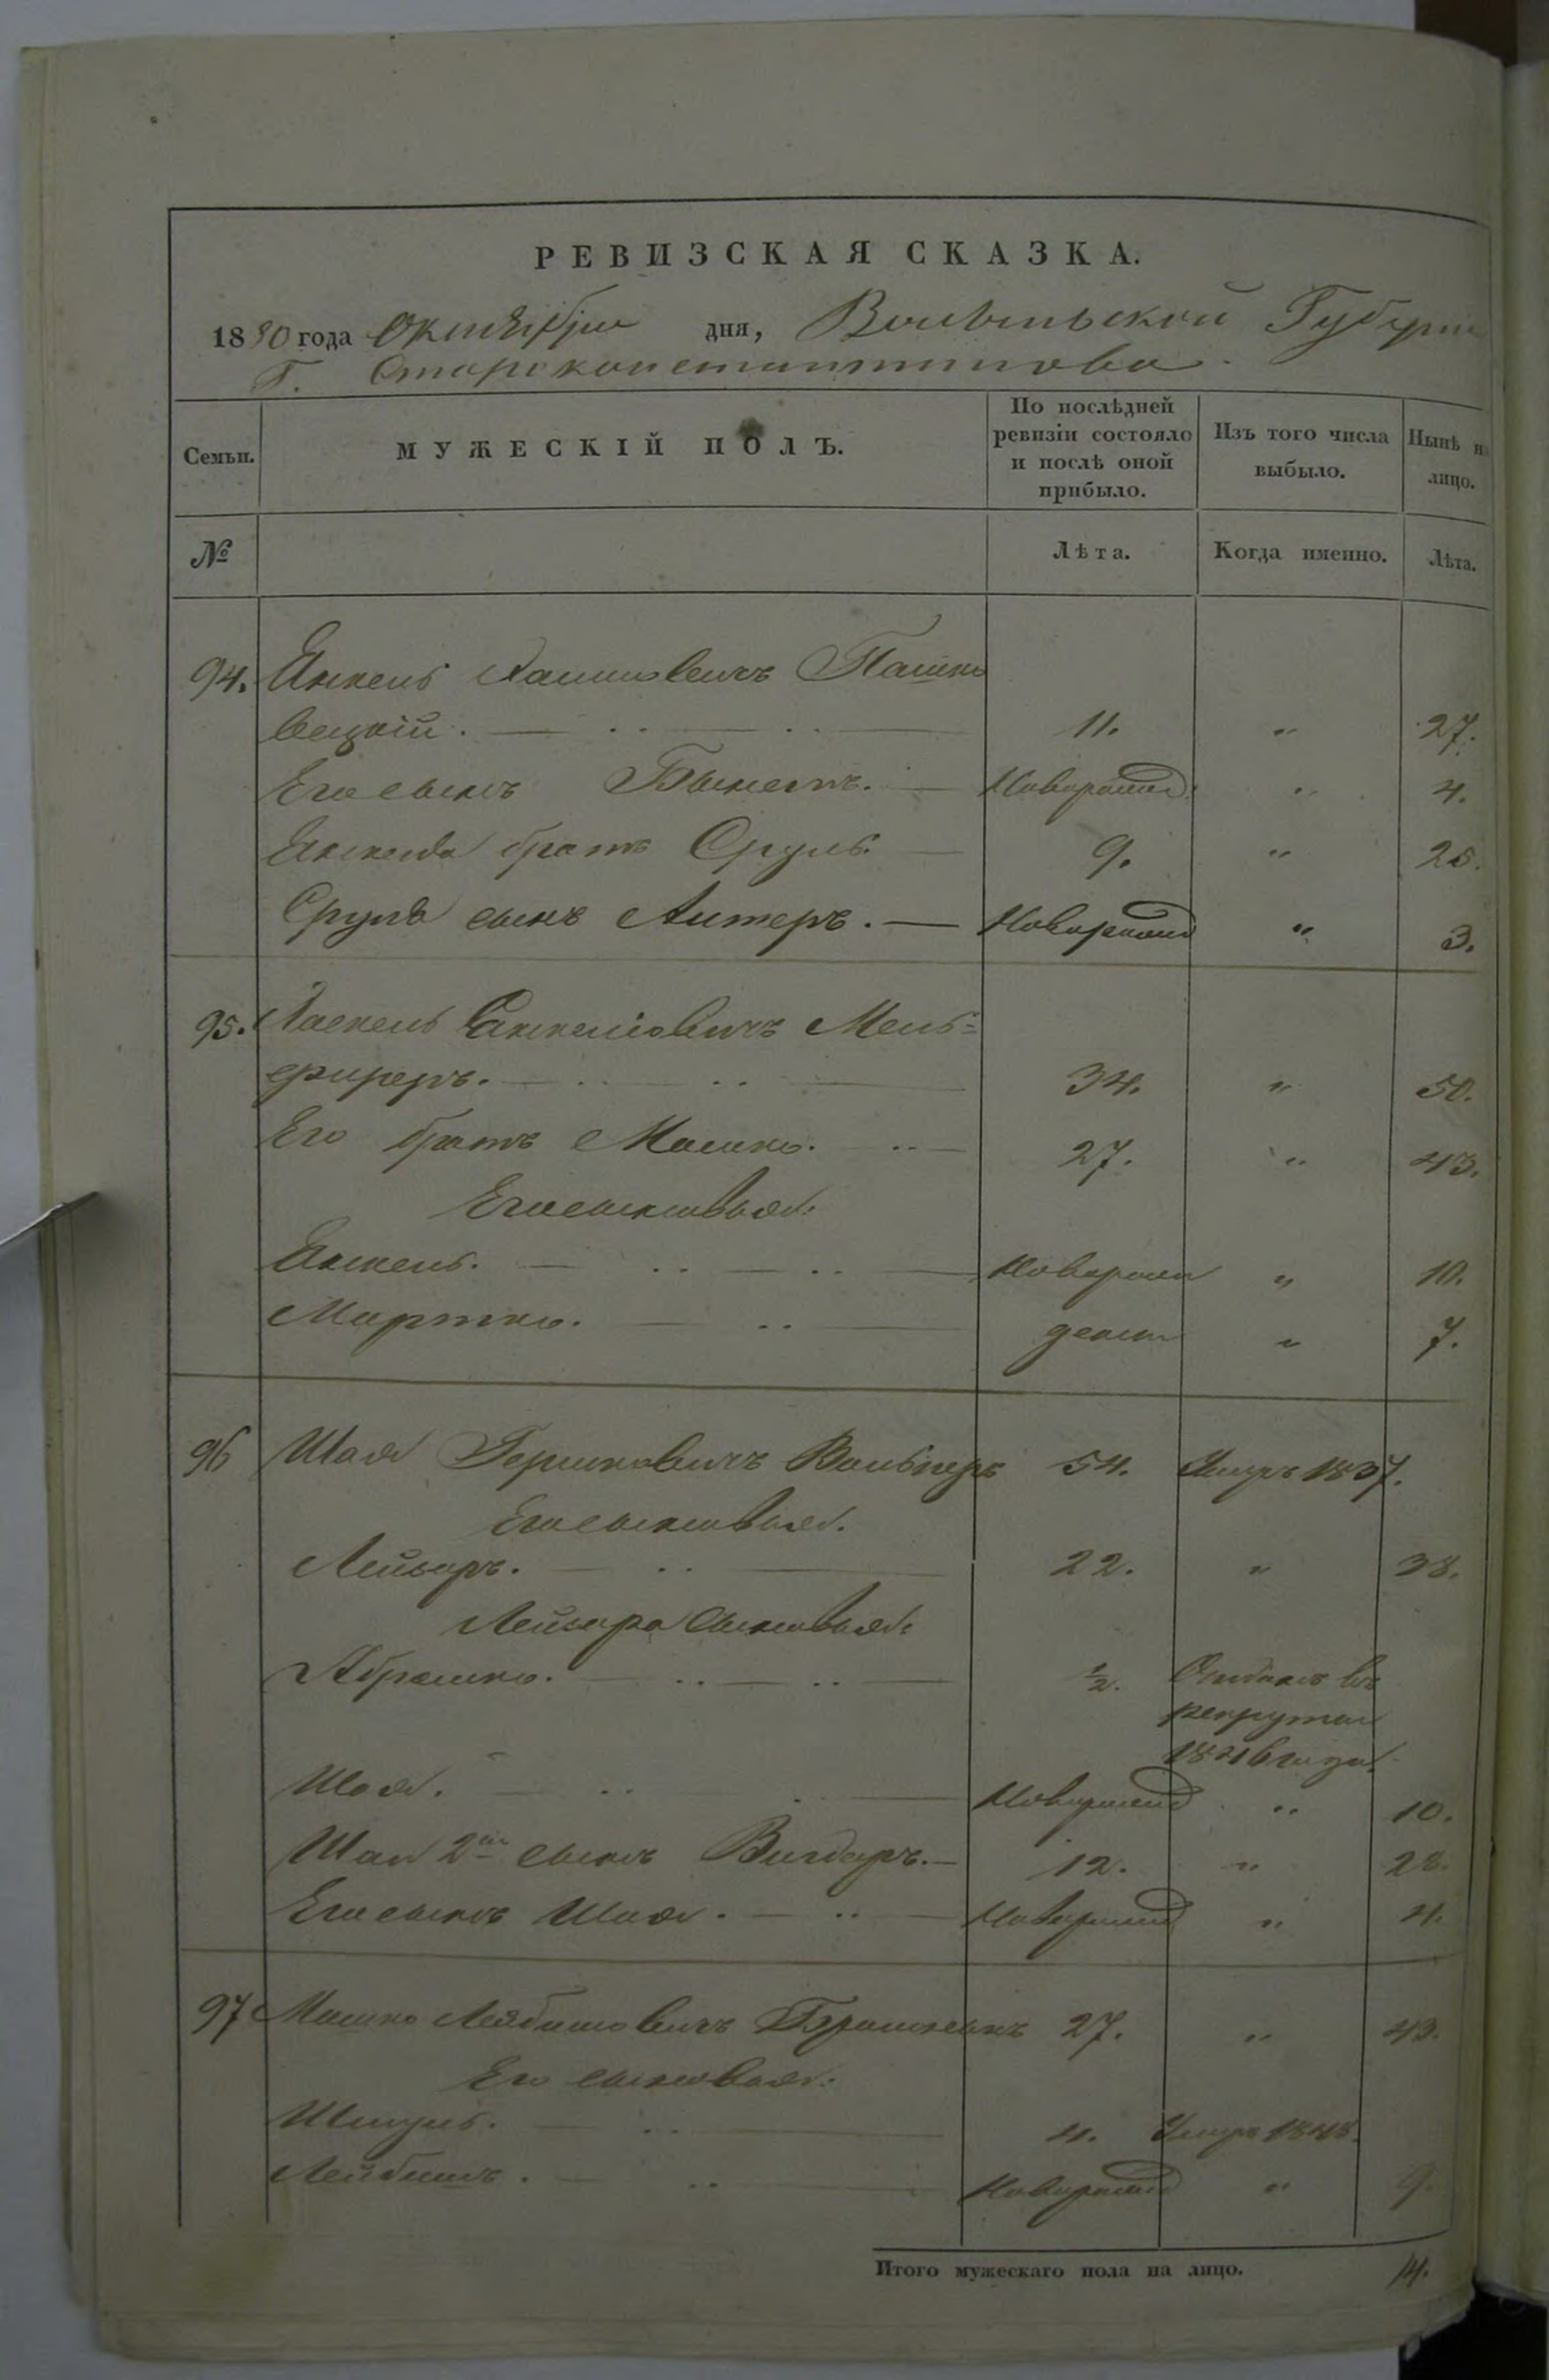 РЕВИЗСКАЯ СКАЗКА.
1850 года Октября дня, Волынской Губерніи
Г. Староконстантинова.
Семьи. МУЖЕСКІЙ ПОЛЪ. По послѣдней ревизіи состояло и послѣ оной прибыло. Изъ того числа выбыло. Нынѣ на лицо.
№ Лѣта. Когда именно. Лѣта.
94. Янкель Пашко
вецкій. 11. " 27.
Его сынъ Новорожд " 4.
Янкеля братъ Сруль 9. " 25.
Сруля сынъ Алтеръ. Новорожд " 3.
95. Хаскель Янкеліовичъ Мель=
фиреръ. 34. " 50.
Его братъ Мошко. 27. " 43.
Его сыновья:
Янкель. Новорож " 10.
Мортко. " 7.
96 Шая Гершковичъ Вольперъ 54. Умеръ 1837.
Его сыновья:
Лейзоръ. 22. " 38.
Лейзора сыновья:
Абрамко. ½. Отданъ въ
рекруты
1846 года.
Шая. Новорожд " 10.
Шаи 2й сынъ Вигдоръ. 12. " 28.
Его сынъ Шая. Новорожд " 4.
97 Мошко Лейбишовичъ 27. " 43.
Его сыновья:
Шмуль. 4. Умеръ 1848.
Лейбишъ. Новорожд " 9.
Итого мужескаго пола на лицо. 14.